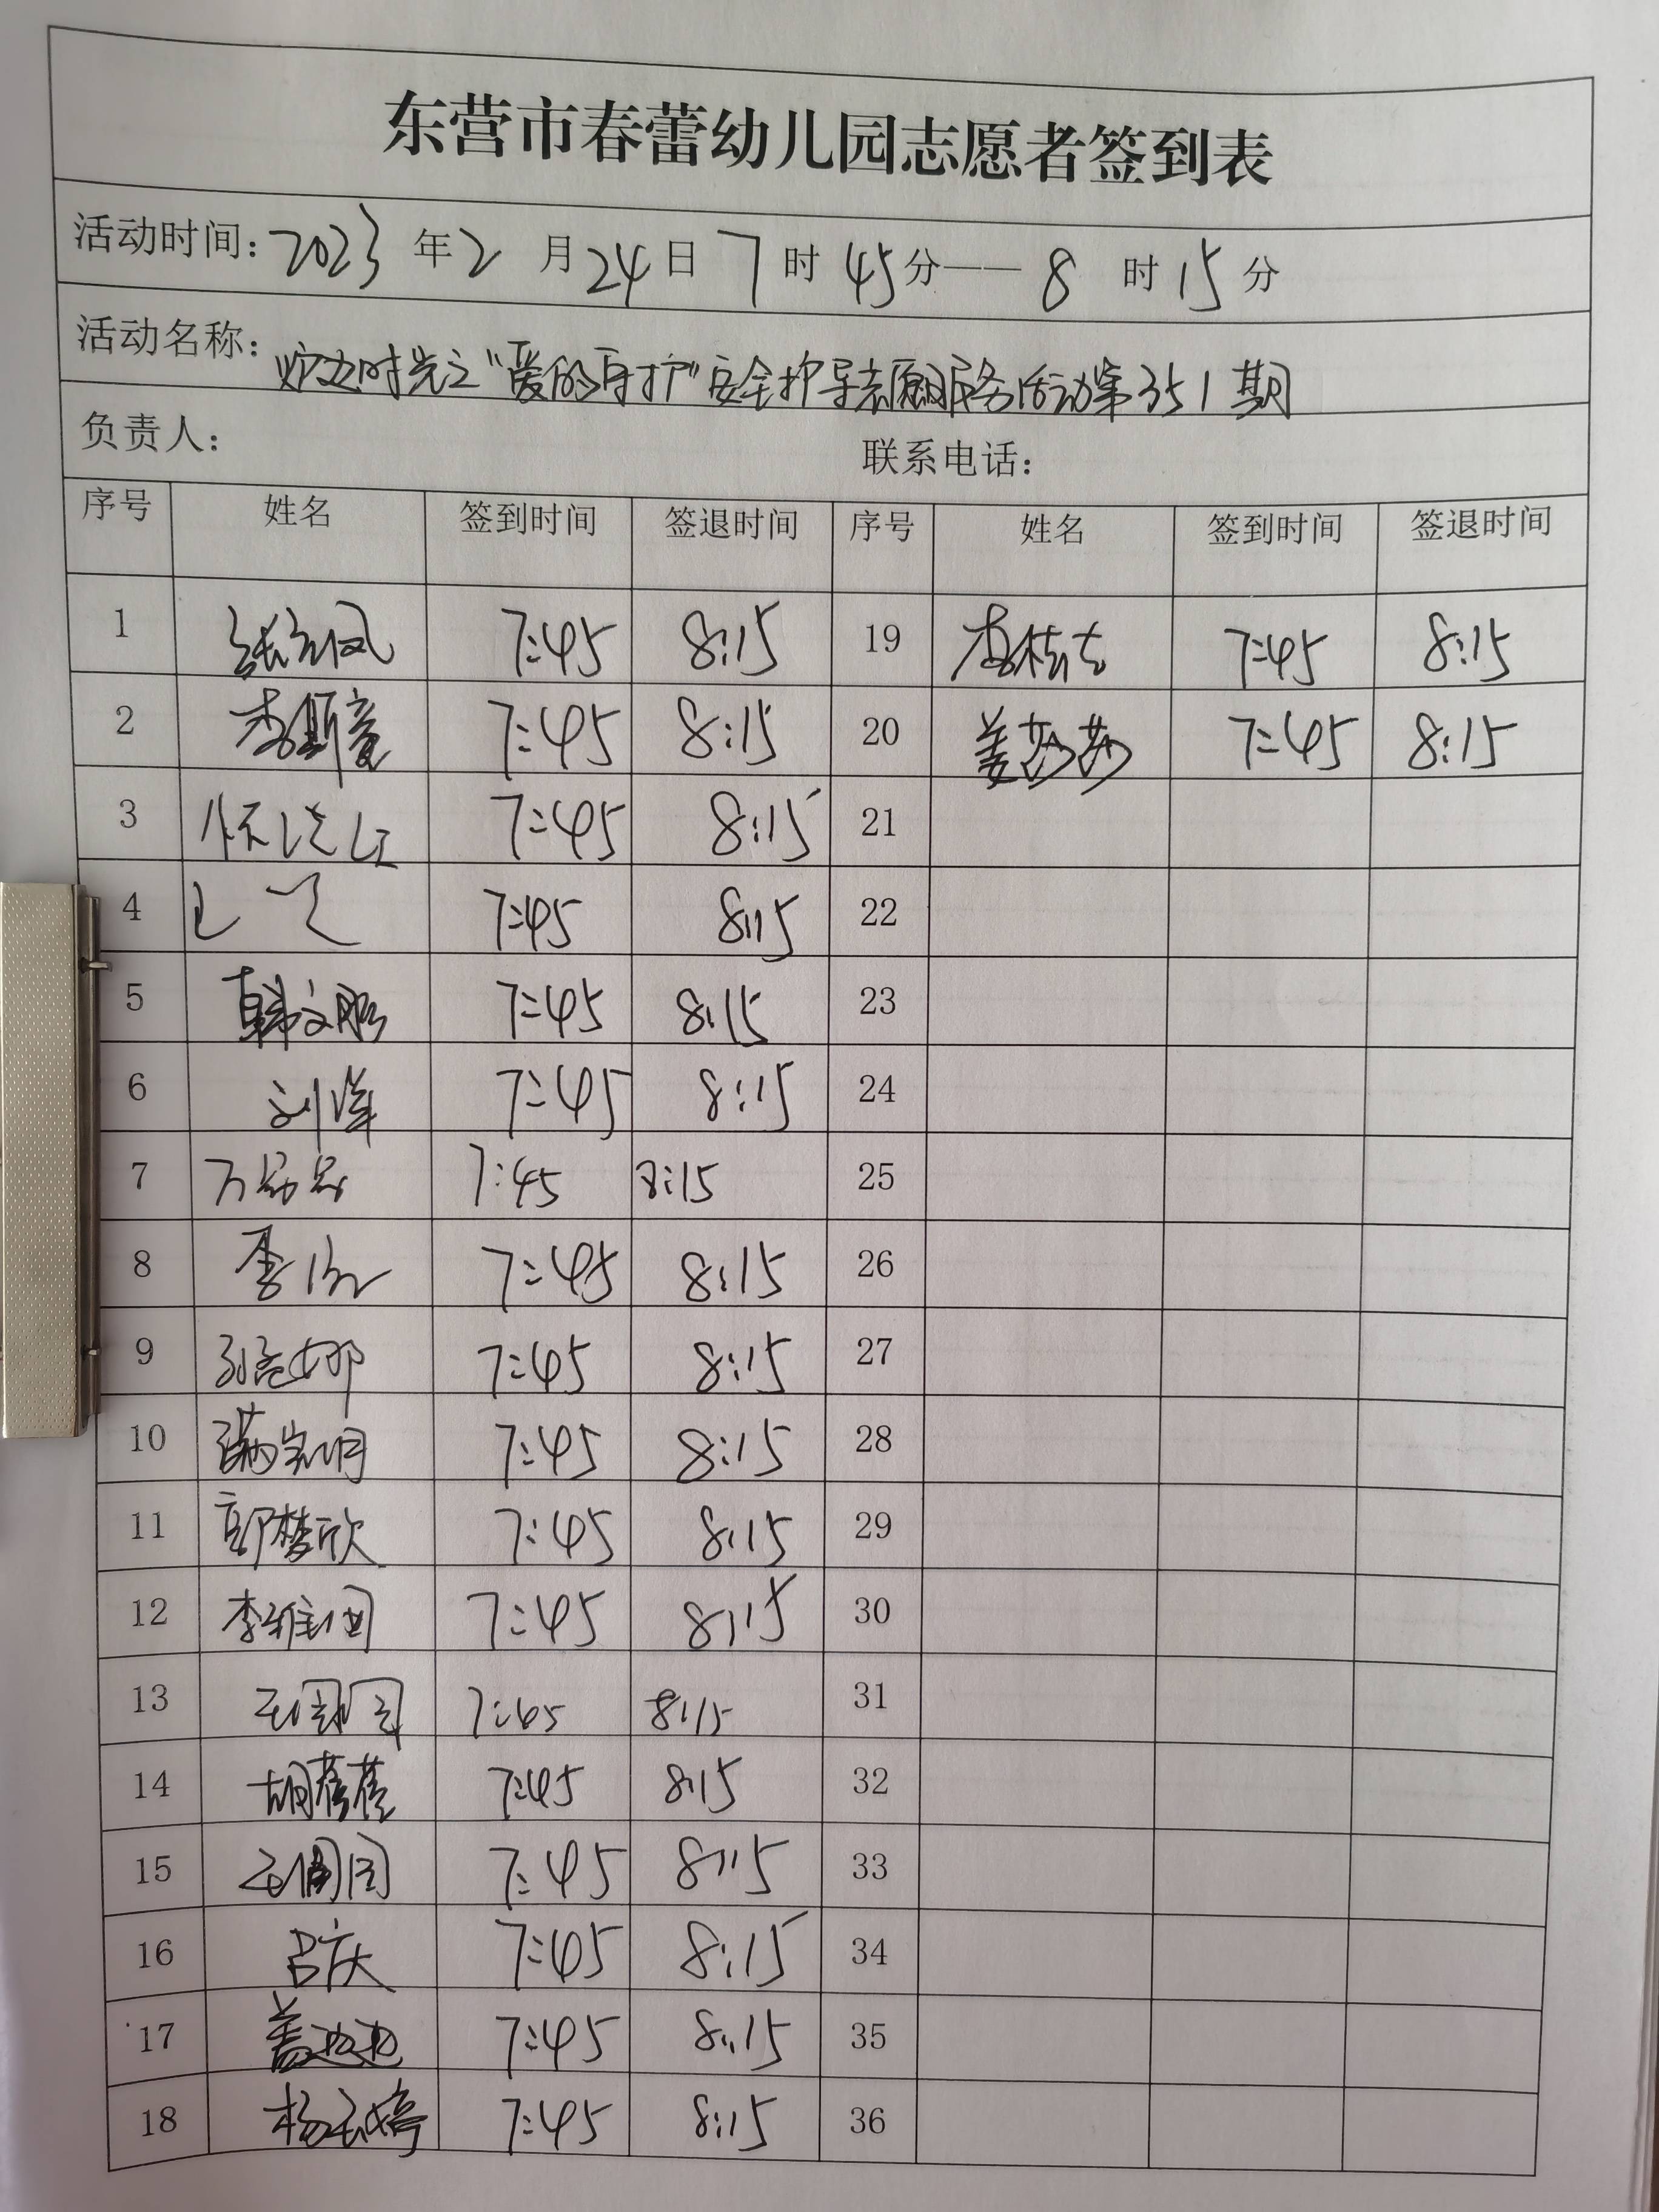 东营市春蕾幼儿园志愿者签到表
活动时间: 2023 年 2 月 24 日 7 时 45 分——8 时 15 分
活动名称: 炉边时光之“爱的守护”安全护导志愿服务活动第351期
负责人: 联系电话:
序号 姓名 签到时间 签退时间 序号 姓名 签到时间 签退时间
1 7:45 8:15 19 李桂 7:45 8:15
2 李斯童 7:45 8:15 20 姜莎莎 7:45 8:15
3 7:45 8:15 21
4 7:45 8:15 22
5 韩文 7:45 8:15 23
6 刘洋 7:45 8:15 24
7 万 7:45 8:15 25
8 李 7:45 8:15 26
9 孙 娜 7:45 8:15 27
10 明 7:45 8:15 28
11 郭梦欣 7:45 8:15 29
12 李维 7:45 8:15 30
13 王 7:45 8:15 31
14 胡蓓蓓 7:45 8:15 32
15 王 7:45 8:15 33
16 吕庆 7:45 8:15 34
17 盖 7:45 8:15 35
18 杨 婷 7:45 8:15 36